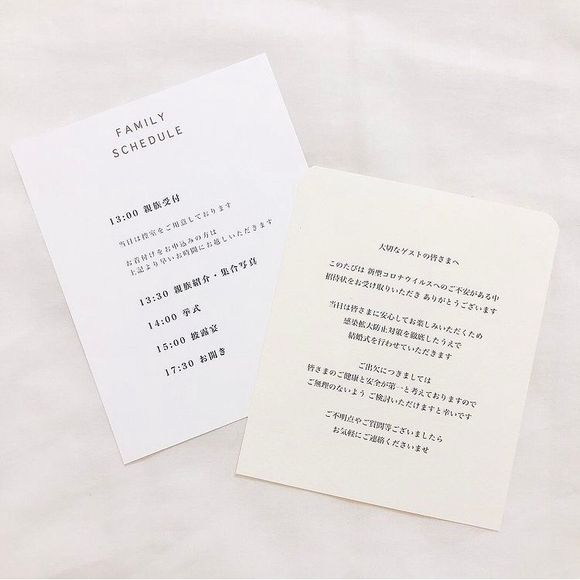 FAMILY
SCHEDULE
13:00 親族受付
当日は控室をご用意しております
お着付けをお申込みの方は
上記より早いお時間にお越しいただきます
13:30 親族紹介・集合写真
14:00 挙式
15:00 披露宴
17:30 お開き
大切なゲストの皆さまへ
このたびは 新型コロナウイルスへのご不安がある中
招待状をお受け取りいただき ありがとうございます
当日は皆さまに安心してお楽しみいただくため
感染拡大防止対策を徹底したうえで
結婚式を行わせていただきます
ご出欠につきましては
皆さまのご健康と安全が第一と考えておりますので
ご無理のないよう ご検討いただけますと幸いです
ご不明点やご質問等ございましたら
お気軽にご連絡くださいませ